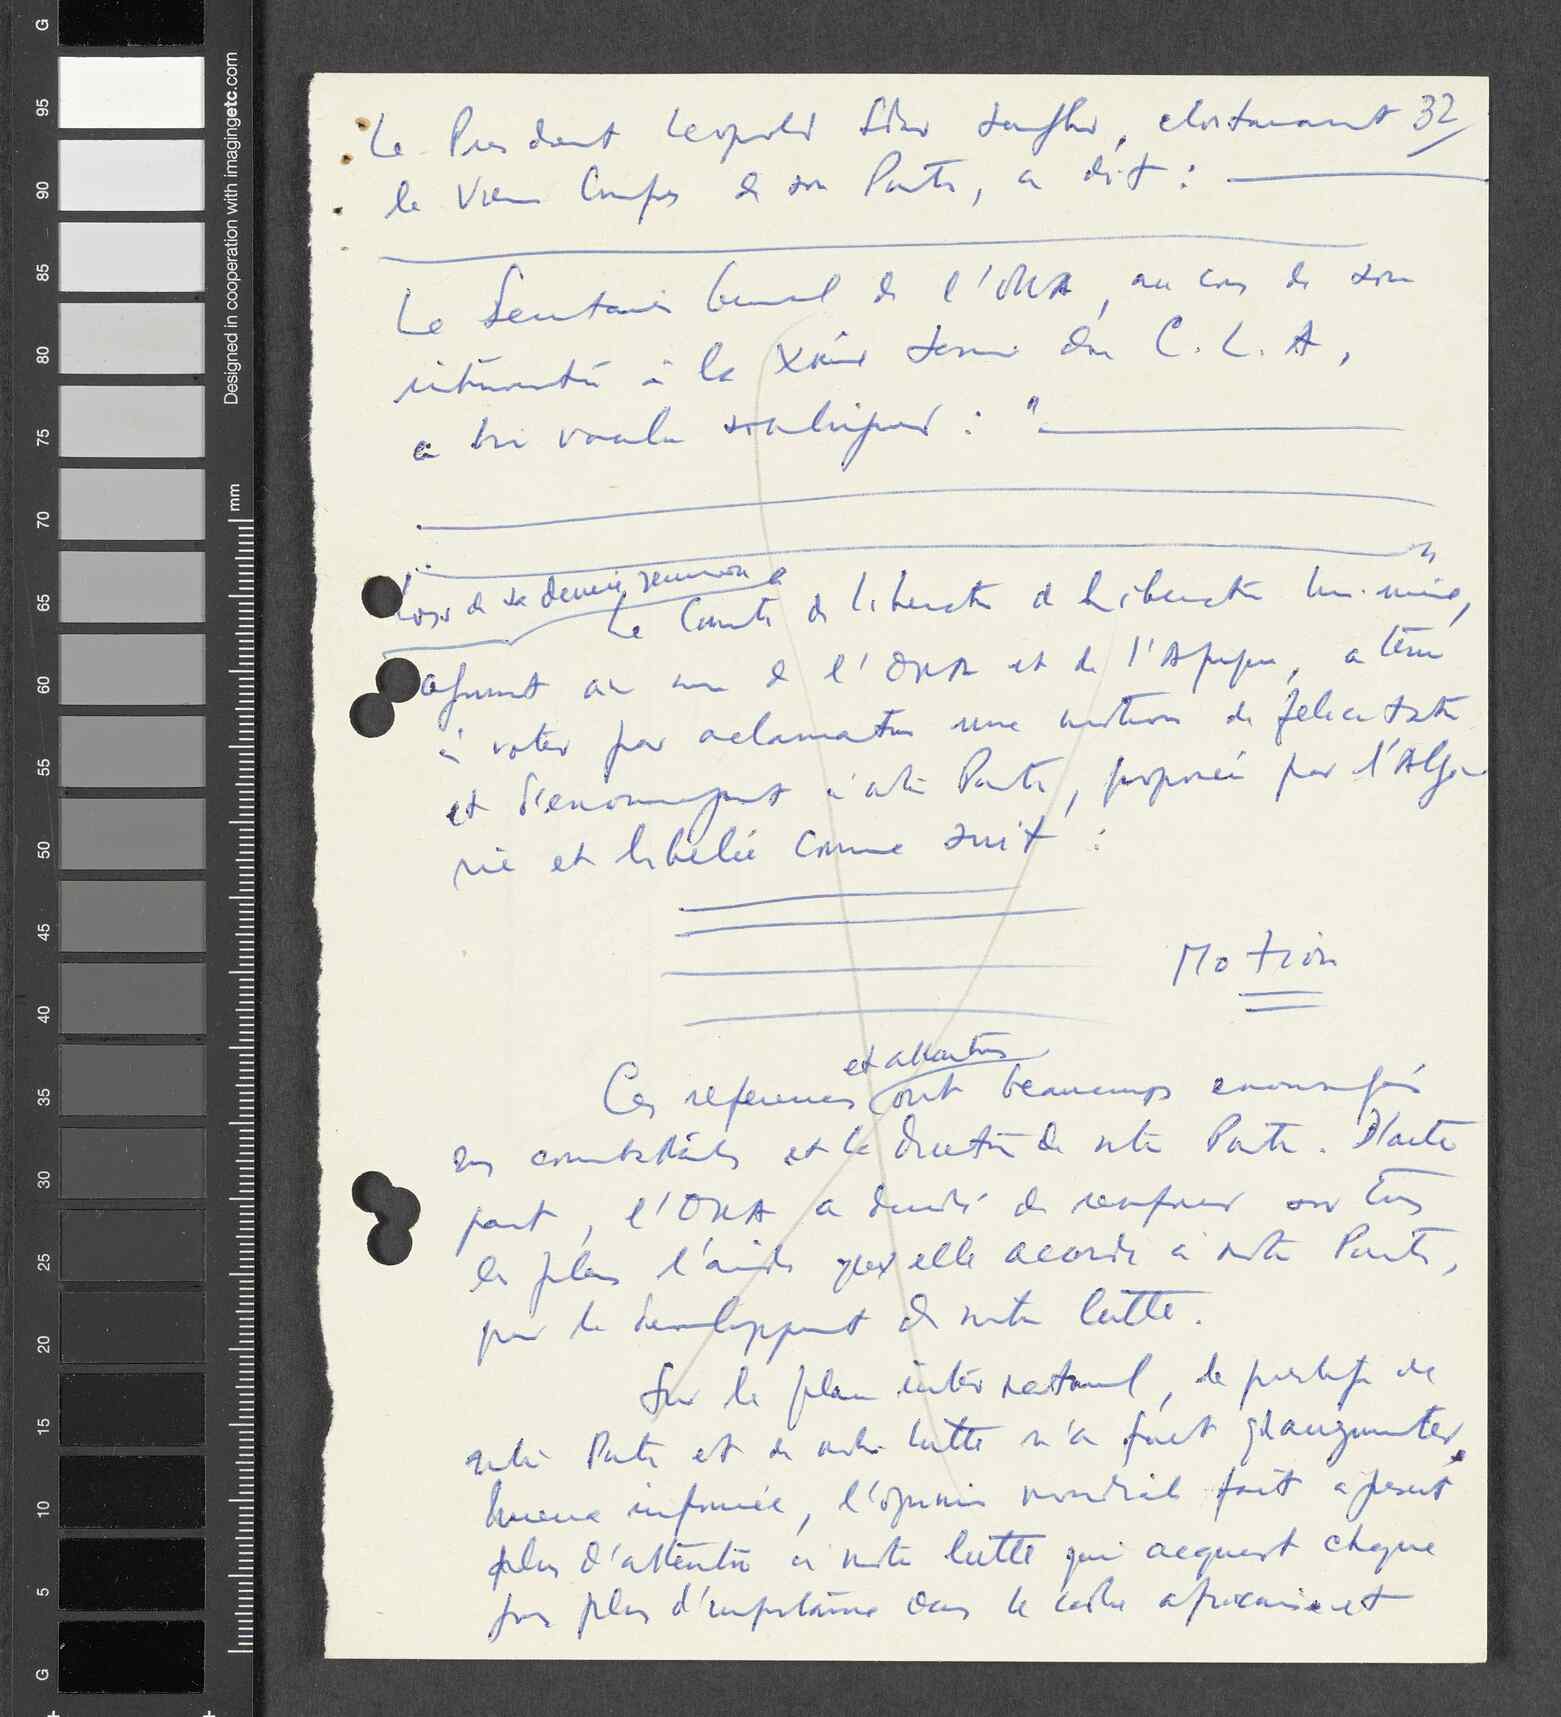 G
95
90
85
80
75
70
65
60
55
50
45
40
35
30
25
20
15
10
5
G
Designed in cooperation with imagingetc.com
mm
32
Le President Leopold Senghor,
le Congrès de son Parti, a dit :
Le Secretaire General de l'OUA, au cours de son
à la session du C.L.A,
a bien voulu souligner : "
Lors de sa dernière reunion
Le Comité de liberation
au nom de l'OUA et de l'Afrique, a tenu
à voter par aclamation une motion de felicitation
et d'encouragement à notre Parti, proposée par l'Algé
rie et libellée comme suit :
Motion
et attentions
Ces references ont beaucoup encouragés
nos combattants et la direction de notre Parti. D'autre
part, l'OUA a decidé de renforcer sur tous
les plans l'aide qu'elle accorde à notre Parti,
pour le developpement de notre lutte.
Sur le plan international, le prestige de
notre Parti et de notre lutte n'a fait qu'augmenter.
Mieux informée, l'opinion mondiale fait a present
plus d'attention à notre lutte qui acquert chaque
jour plus d'importance dans le cadre africain et